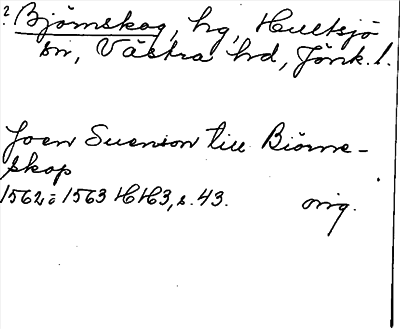 ? Björnskog, hg, Hultsjö
sn, Västra hd, Jönk. l.
Joen Suenson till Biörne-
skop
1562 o 1563 HH3, s. 43. orig.